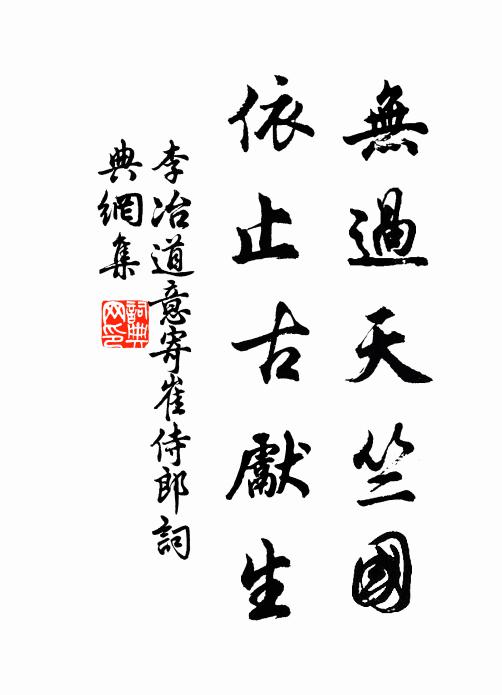 無過天竺國
依止古獻生
李冶道意寄崔侍郎詞
典網集
詞典
网印